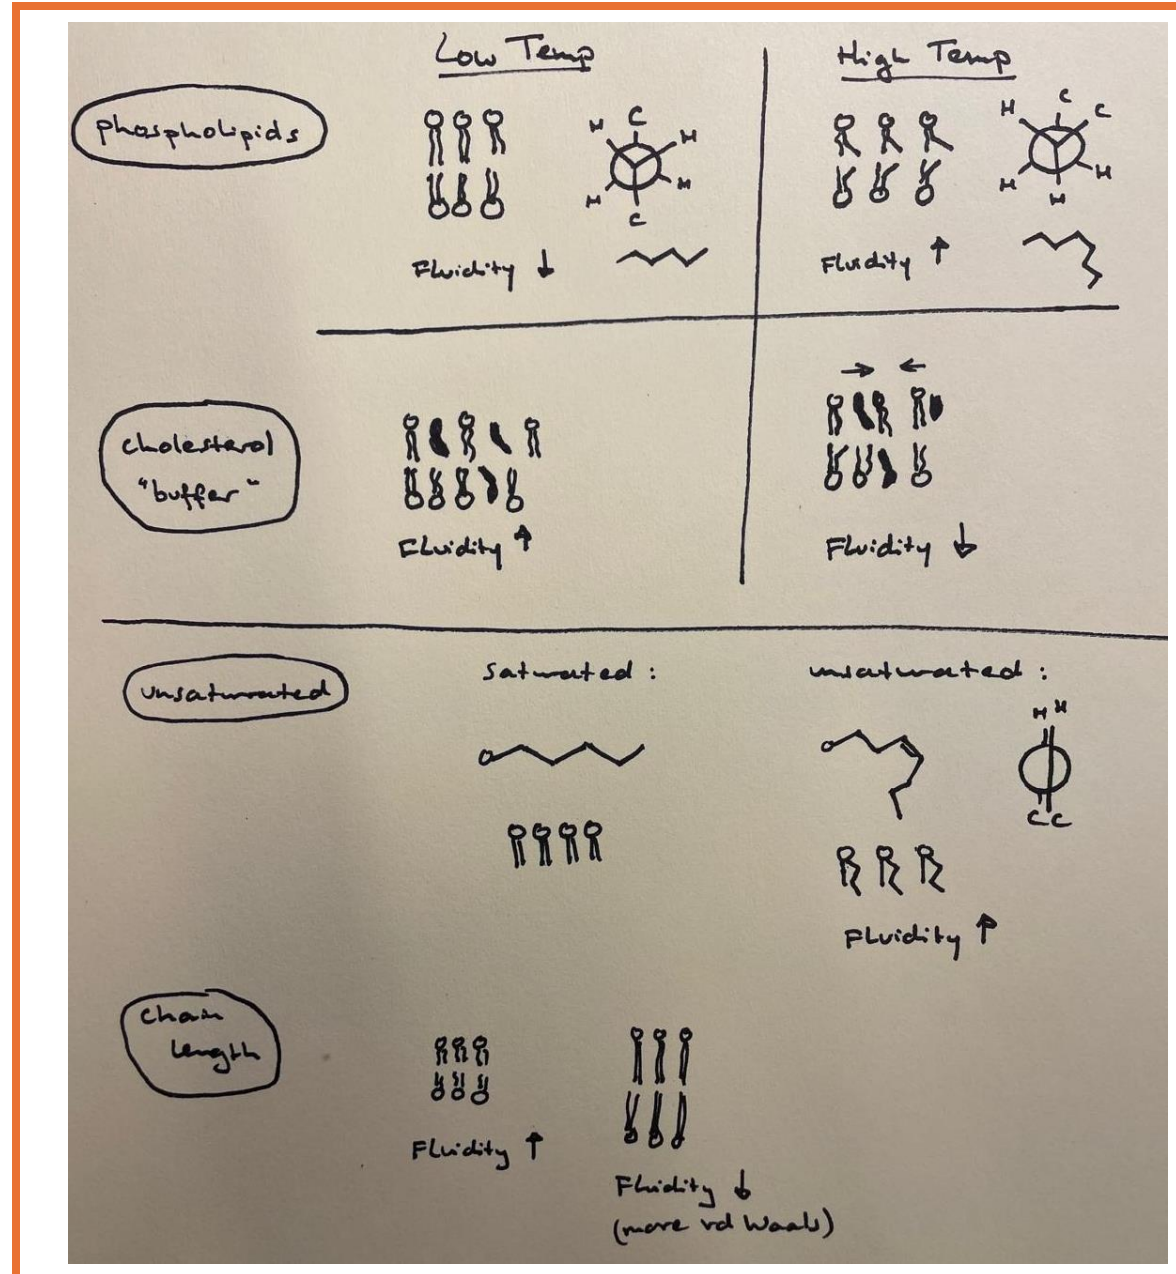 Low Temp
High Temp
phospholipids
H C H
H H
C
C C
H
H H
H
Fluidity ↓
Fluidity ↑
cholesterol
"buffer"
Fluidity ↑
Fluidity ↓
unsaturated
saturated :
unsaturated :
H H
C C
Fluidity ↑
chain
length
Fluidity ↑
Fluidity ↓
(more vd Waals)